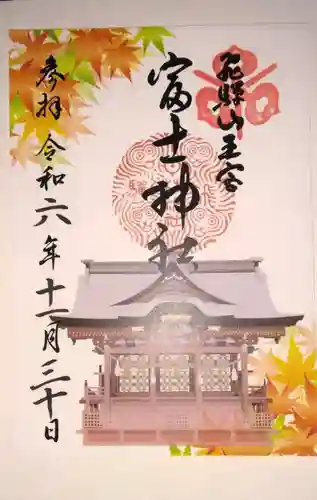 飛騨山王宮
富士神社
参拝 令和六年十一月三十日